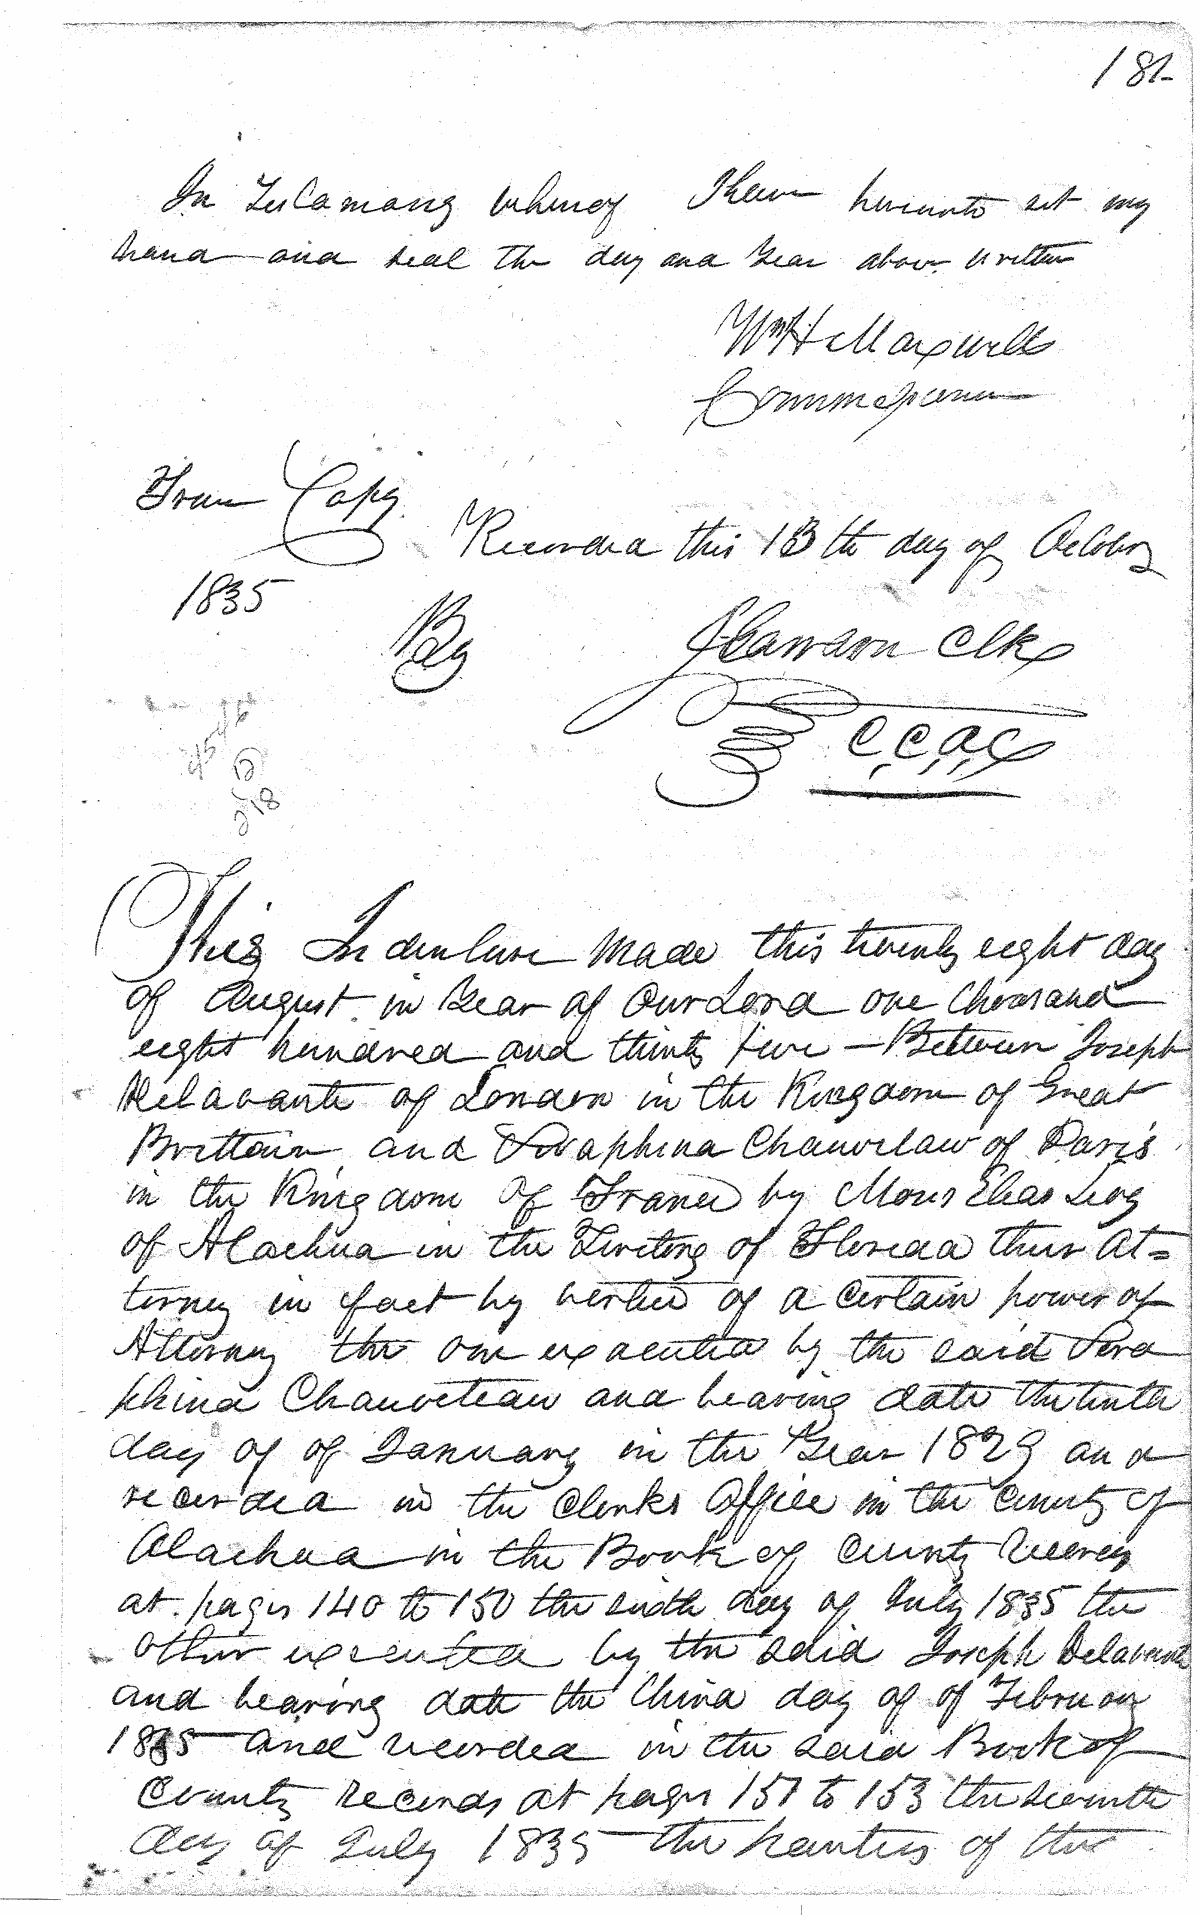 181
In Testamony whereof I have hereunto set my
hand and seal the day and Year above written
Wm H Maxwell
Commissioner
True Copy
Recorded this 13th day of October
1835
By
Clk
C.C.A.C
This Indenture made this twenty eight day
of August in Year of Our Lord one thousand
eight hundred and thirty five — Between Joseph
Delavante of London in the Kingdom of Great
Brittain and Seraphina Chauveteau of Paris
in the Kingdom of France by Moses Elias Levy
of Alachua in the Territory of Florida their At=
torney in fact by vertue of a certain power of
Attorney the one executed by the said Sera
phina Chauveteau and bearing date the tenth
day of of January in the Year 1829 and
recorded in the Clerks Office in the County of
Alachua in the Book of County Records
at pages 140 to 150 the sixth day of July 1835 the
other executed by the said Joseph Delavante
and bearing date the third day of of February
1835 and recorded in the said Book of
County Records at pages 151 to 153 the seventh
day of July 1835 the parties of the